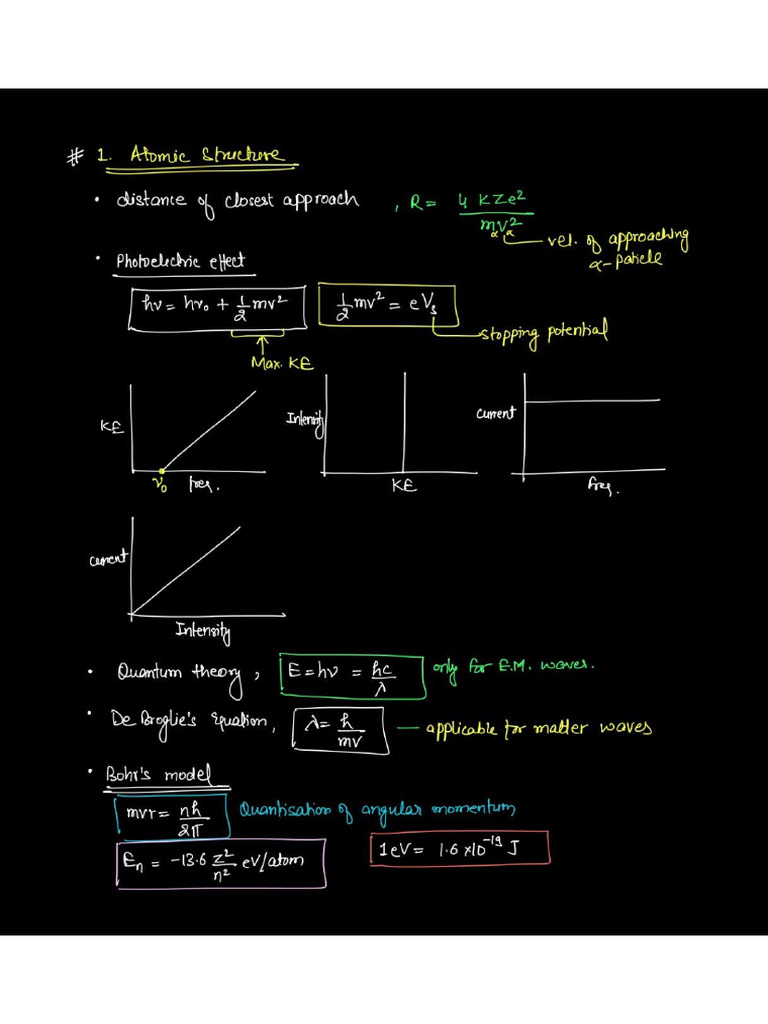 # 1. Atomic Structure
• distance of closest approach , R = 4KZe²/mαvα²
vel. of approaching
α-paticle
• Photoelectric effect
hν = hν₀ + 1/2 mv²
1/2 mv² = eVs
stopping potential
Max. KE
KE
ν₀ freq.
Intensity
KE
Current
freq.
Current
Intensity
• Quantum theory, E = hν = hc/λ only for E.M. waves.
• De Broglie's Equation, λ = h/mv — applicable for matter waves
• Bohr's model
mvr = nh/2π Quantisation of angular momentum
En = -13.6 z²/n² eV/atom
1eV = 1.6 × 10⁻¹⁹ J